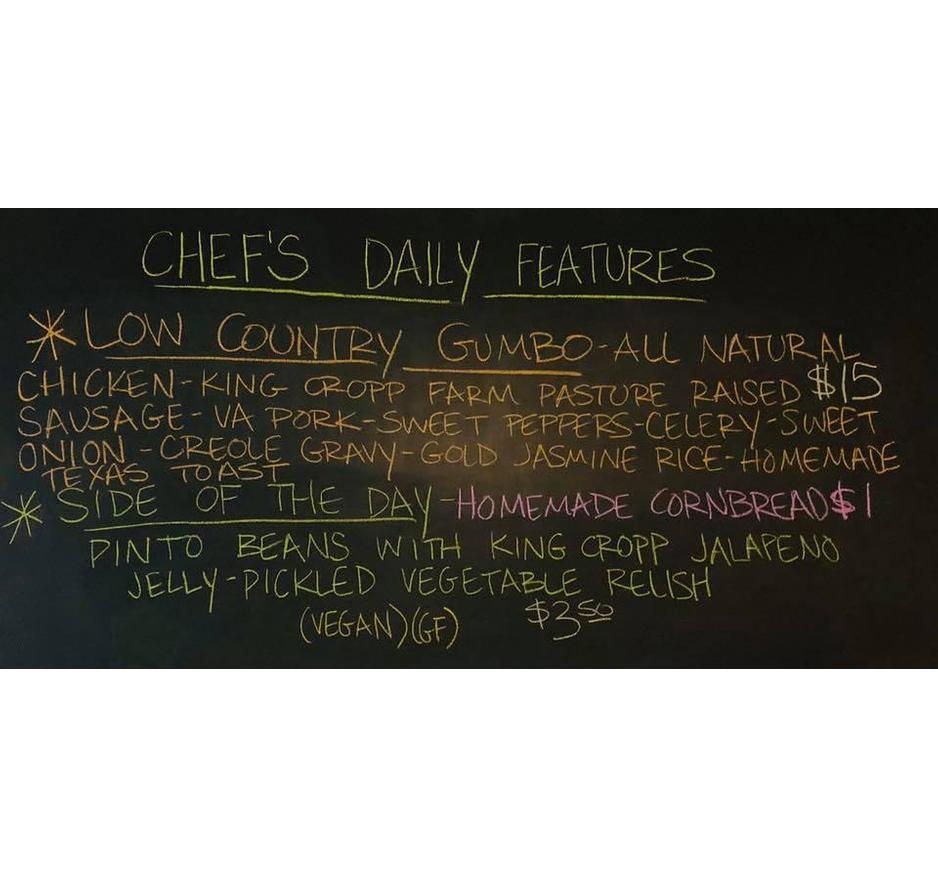 CHEF'S DAILY FEATURES
* LOW COUNTRY GUMBO-ALL NATURAL
CHICKEN-KING CROPP FARM PASTURE RAISED $15
SAUSAGE-VA PORK-SWEET PEPPERS-CELERY-SWEET
ONION-CREOLE GRAVY-GOLD JASMINE RICE-HOMEMADE
TEXAS TOAST
* SIDE OF THE DAY-HOMEMADE CORNBREAD $1
PINTO BEANS WITH KING CROPP JALAPENO
JELLY-PICKLED VEGETABLE RELISH
(VEGAN)(GF) $3.50